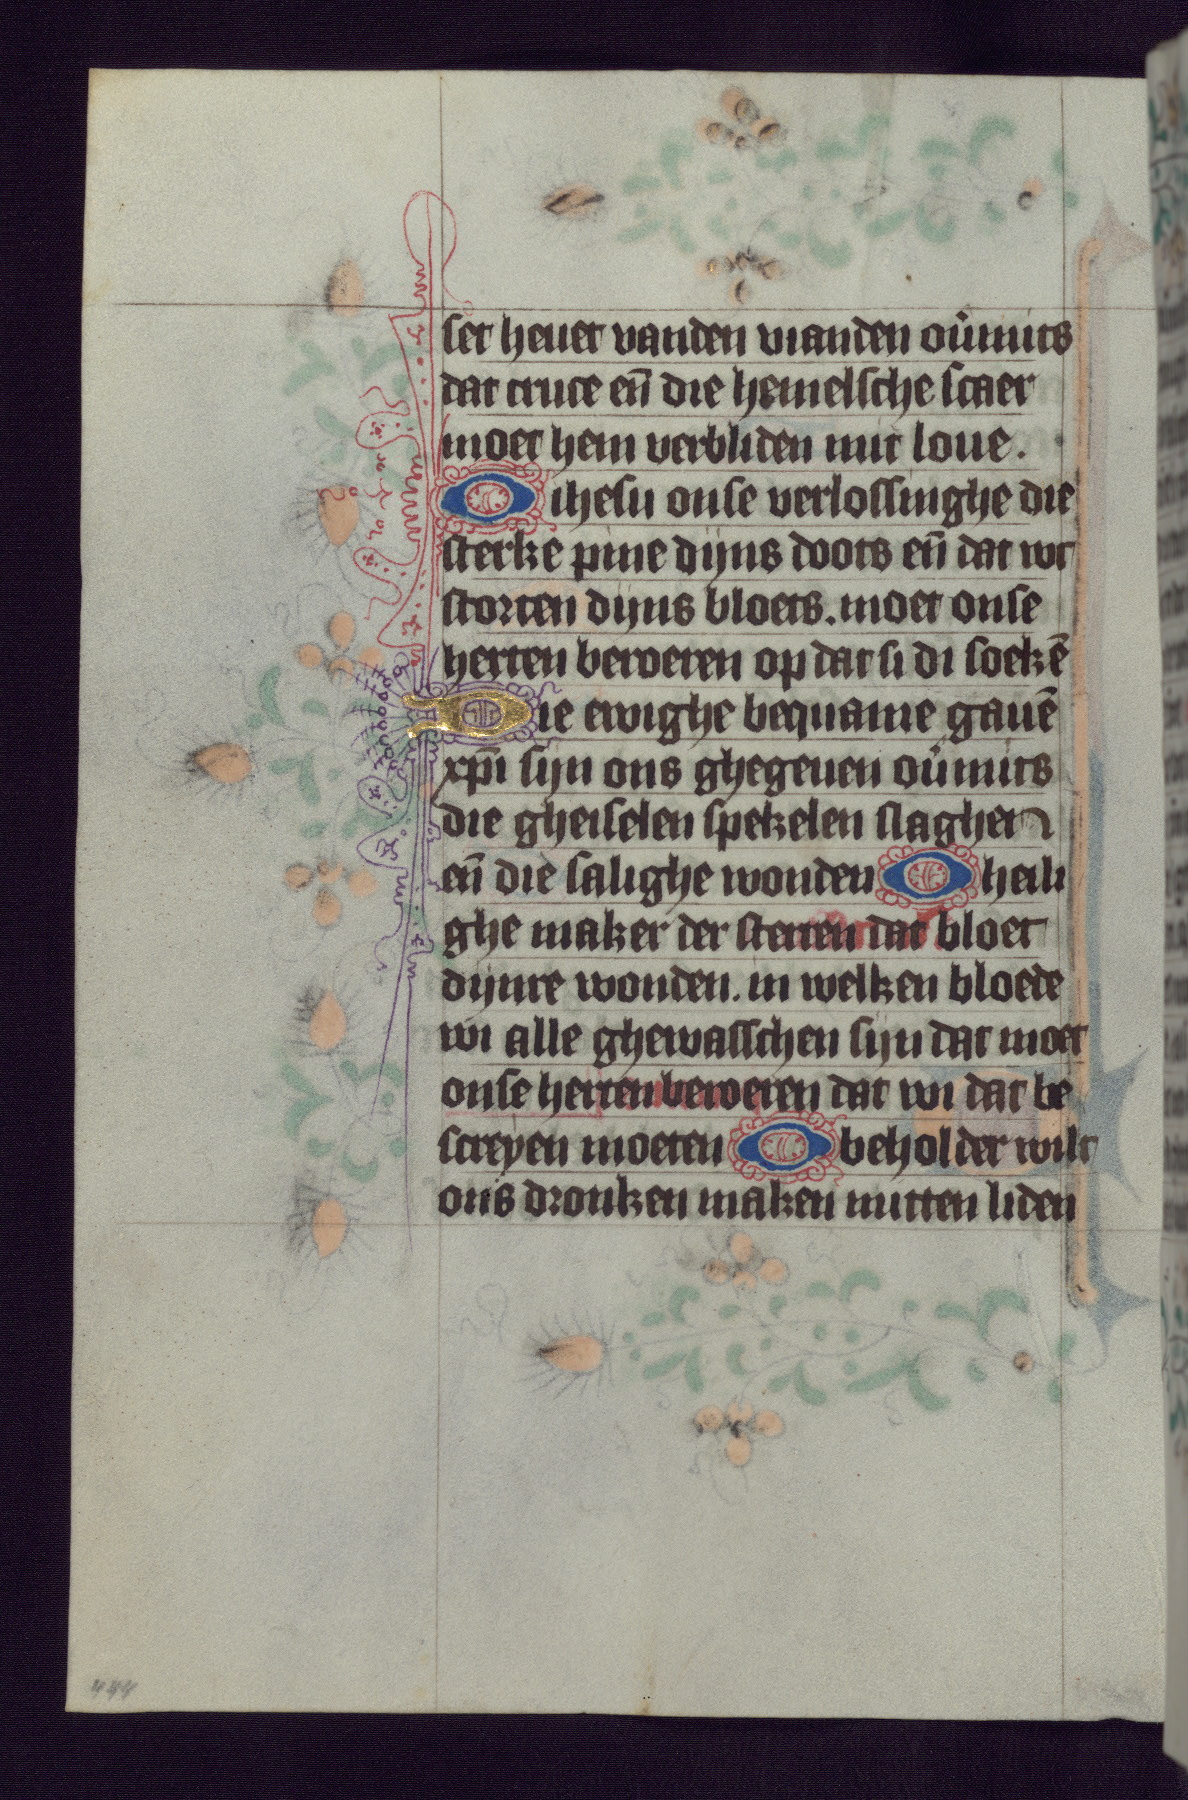 set heuet vanden vianden ou̇mits
dat cruce en̄ die hemelsche scaer
moet hem verbliden mit loue.
O ihesu onse verlossinghe die
sterke pine dijns doots en̄ dat wt
storten dijns bloets. moet onse
herten beroeren op dat si di soekē
Die ewighe bequame gauē
xp̄i sijn ons ghegeuen ou̇mits
die gheiselen spekelen slaghen
en̄ die salighe wonden O heili
ghe maker der sterren dat bloet
dijnre wonden. in welken bloede
wi alle ghewasschen sijn dat moet
onse herten beroeren dat wi dat be
screyen moeten O beholder wilt
ons dronken maken mitten liden
444